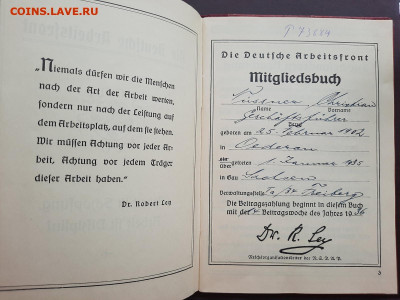 COINS.SU
„Niemals dürfen wir die Menschen
nach der Art der Arbeit werten,
sondern nur nach der Leistung auf
dem Arbeitsplatz, auf dem sie stehen.
Wir müssen Achtung vor jeder Ar-
beit, Achtung vor jedem Träger
dieser Arbeit haben.“
Dr. Robert Ley
Die Deutsche Arbeitsfront
Mitgliedsbuch
Christian
Name Vorname
Geschäftsführer
Beruf
geboren am 25. Februar 1902
in Oederan
getreten 1. Januar 1935
in Gau Sachsen
Verwaltungsstelle Freiberg
Die Beitragszahlung beginnt in diesem Buch
mit der Beitragswoche des Jahres 1936
Dr. R. Ley
Reichsorganisationsleiter der N.S.D.A.P.
3